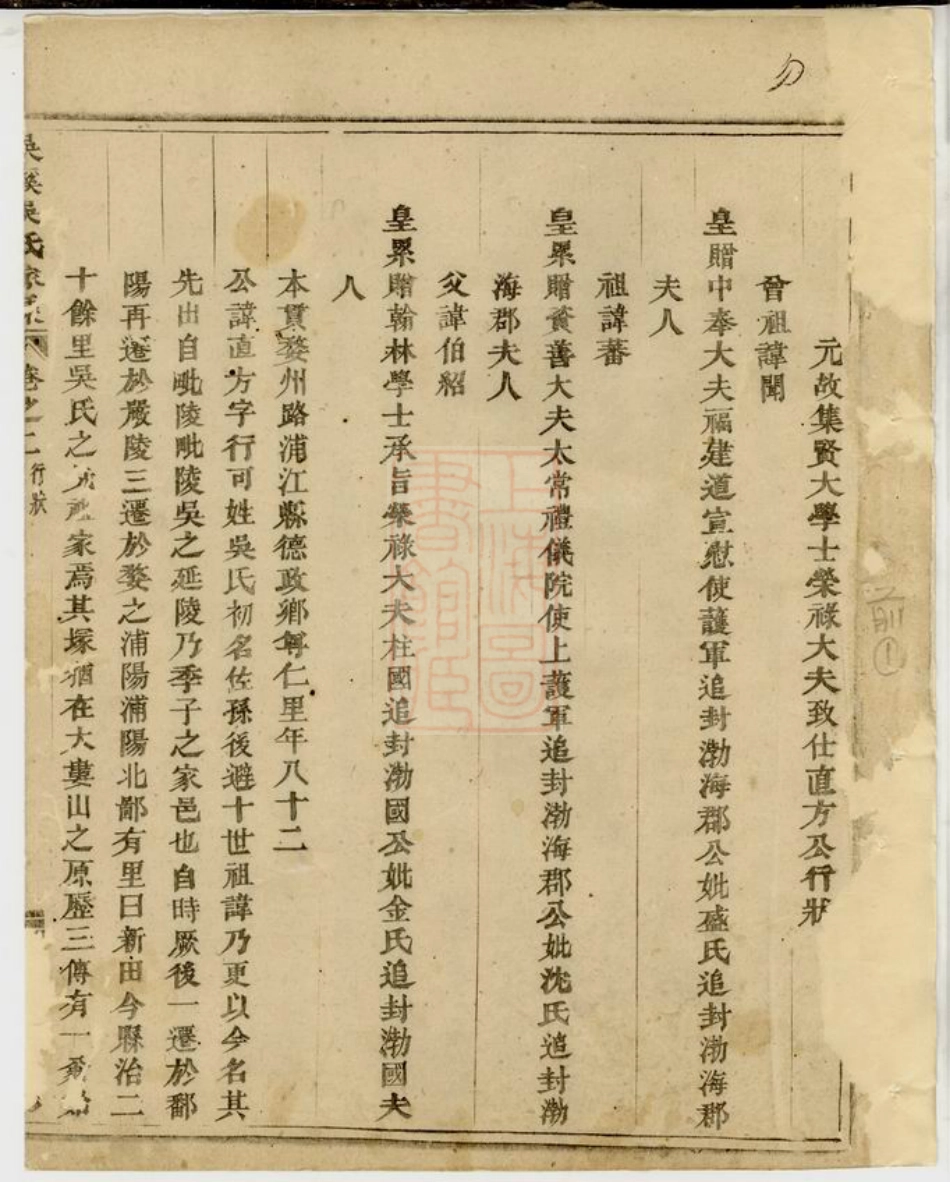 元故集賢大學士榮祿大夫致仕直方公行狀
曾祖諱聞
皇贈中奉大夫福建道宣慰使護軍追封渤海郡公妣盛氏追封渤海郡
夫人
祖諱蕃
皇累贈資善大夫太常禮儀院使上護軍追封渤海郡公妣沈氏追封渤
海郡夫人
父諱伯紹
皇累贈翰林學士承旨榮祿大夫柱國追封渤國公妣金氏追封渤國夫
人
本貫婺州路浦江縣德政鄉尊仁里年八十二
公諱直方字行可姓吳氏初名佐孫後避十世祖諱乃更以今名其
先出自毗陵毗陵吳之延陵乃季子之家邑也自時厥後一遷於鄱
陽再遷於嚴陵三遷於婺之浦陽浦陽北鄙有里曰新田今縣治二
十餘里吳氏之家焉其塚猶在大婁山之原歷三傳有一
吳溪吳氏家乘 卷之二 行狀
上海圖書館藏
①